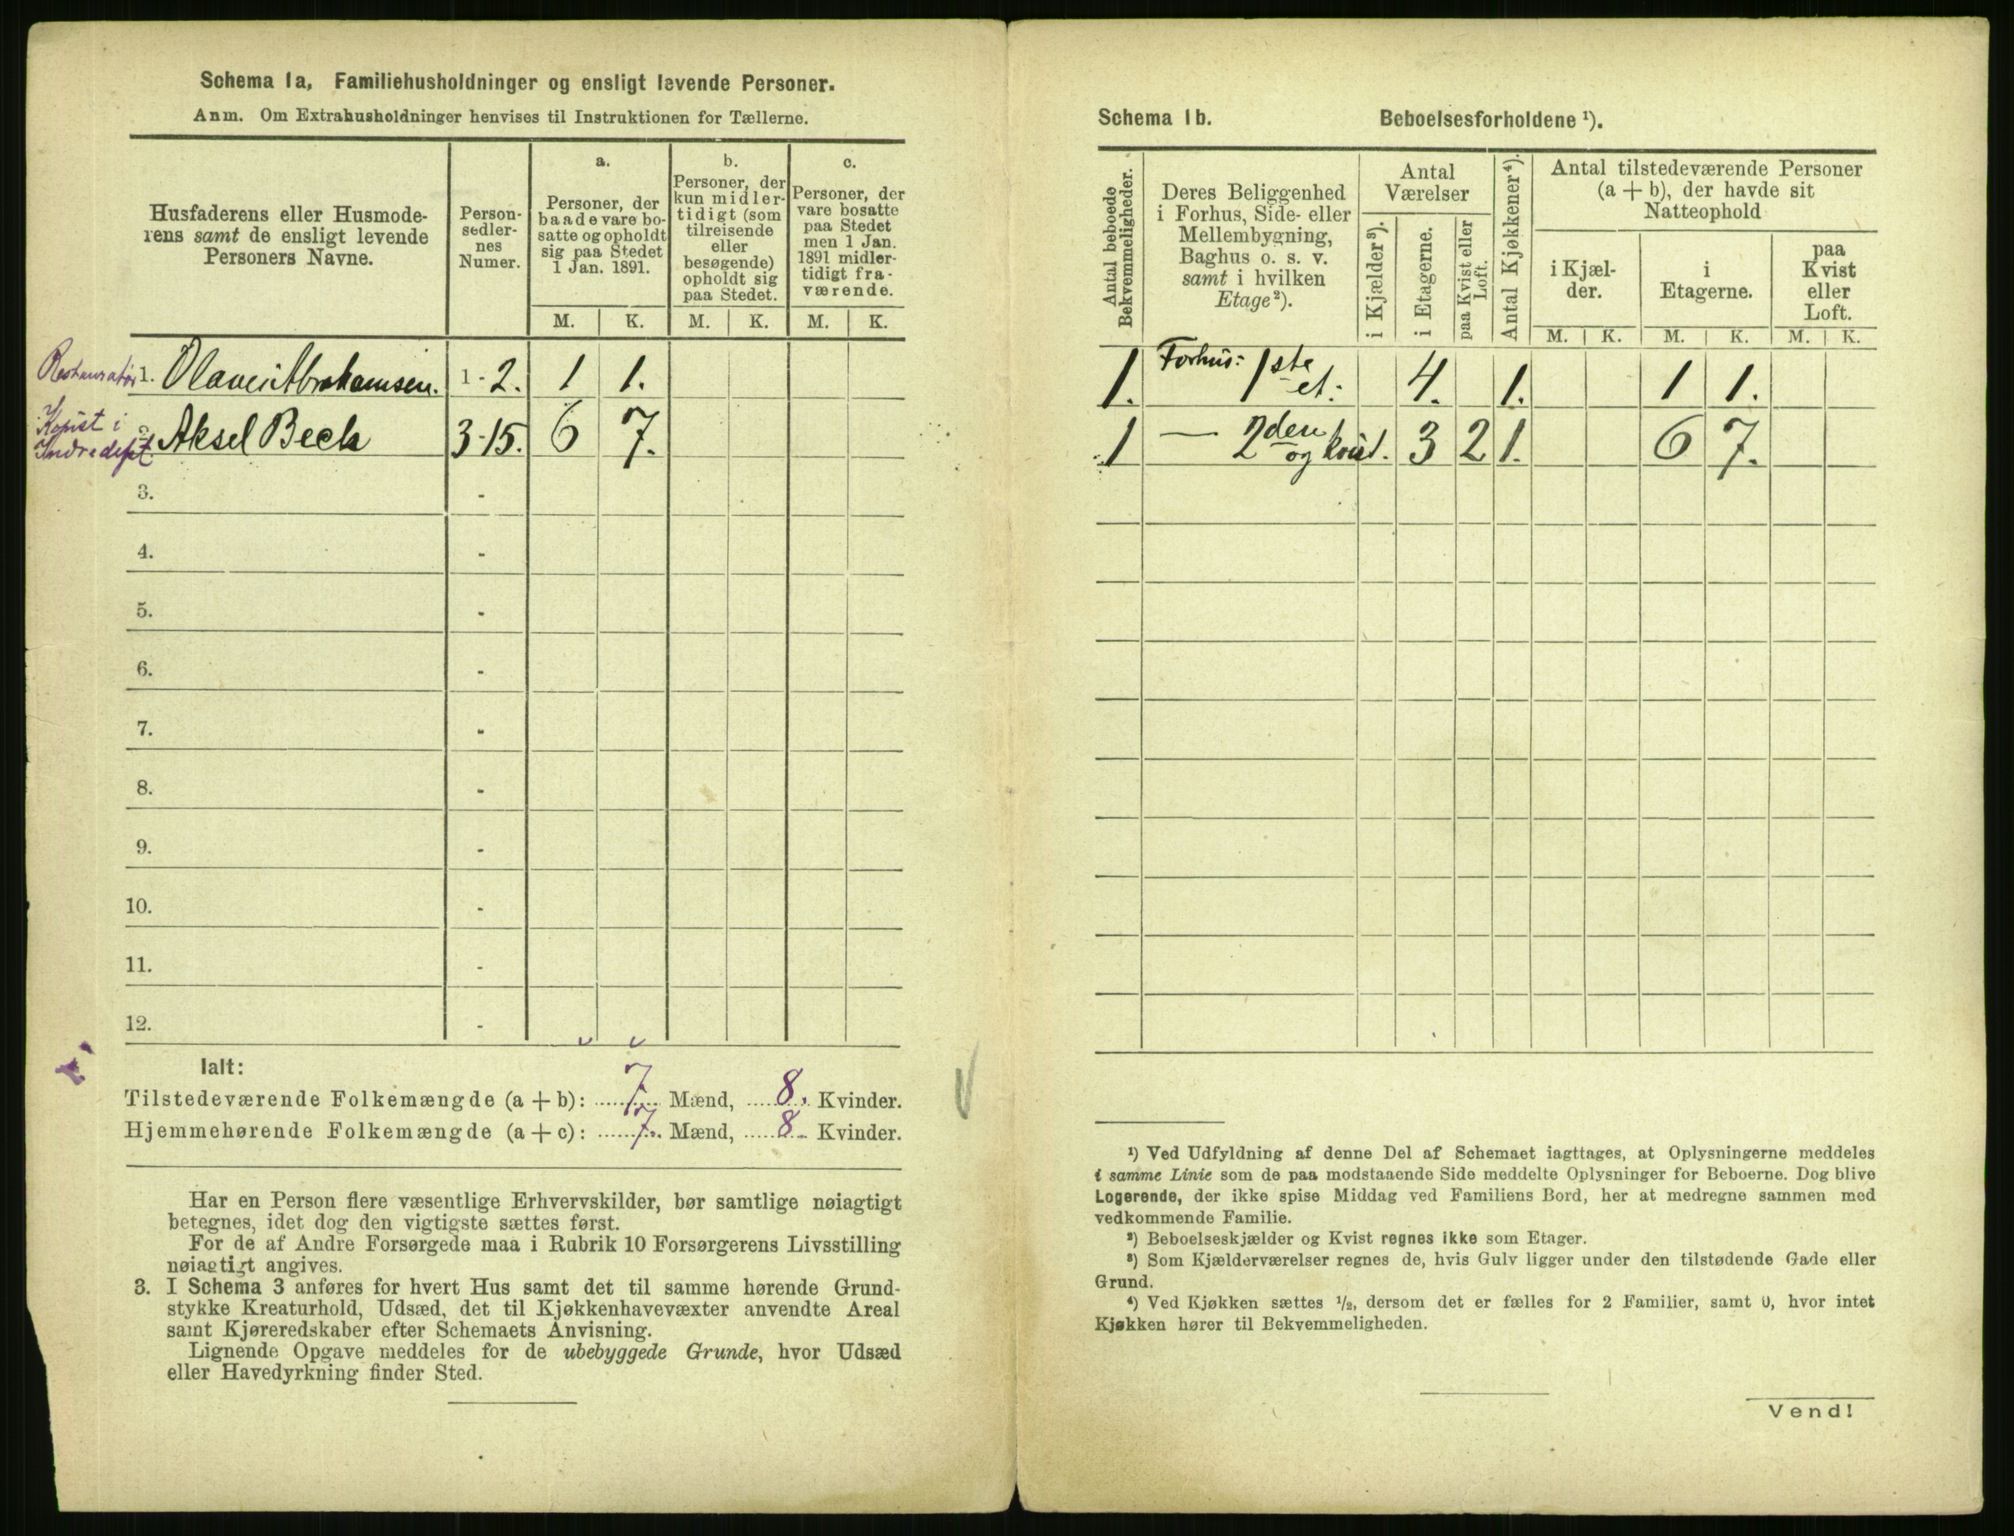 Schema 1a, Familiehusholdninger og ensligt levende Personer.
Anm. Om Extrahusholdninger henvises til Instruktionen for Tællerne.
Husfaderens eller Husmode-
rens samt de ensligt levende
Personers Navne.
Person-
sedler-
nes
Numer.
a.
Personer, der
baade vare bo-
satte og opholdt
sig paa Stedet
1 Jan. 1891.
b.
Personer, der
kun midler-
tidigt (som
tilreisende
eller
besøgende)
opholdt sig
paa Stedet.
c.
Personer, der
vare bosatte
paa Stedet
men 1 Jan.
1891 midler-
tidigt fra-
værende.
M. K. M. K. M. K.
Restauratør 1. Olaves Abrahamsen. 1 - 2. 1 1.
Kopist i
Indredept. 2. Aksel Beck 3-15. 6 7.
3. -
4. -
5. -
6. -
7. -
8. -
9. -
10. -
11. -
12. -
Ialt:
Tilstedeværende Folkemængde (a + b): 7. Mænd, 8. Kvinder.
Hjemmehørende Folkemængde (a + c): 7. Mænd, 8- Kvinder.
Har en Person flere væsentlige Erhvervskilder, bør samtlige nøiagtigt
betegnes, idet dog den vigtigste sættes først.
For de af Andre Forsørgede maa i Rubrik 10 Forsørgerens Livsstilling
nøiagtigt angives.
3. I Schema 3 anføres for hvert Hus samt det til samme hørende Grund-
stykke Kreaturhold, Udsæd, det til Kjøkkenhavevæxter anvendte Areal
samt Kjøreredskaber efter Schemaets Anvisning.
Lignende Opgave meddeles for de ubebyggede Grunde, hvor Udsæd
eller Havedyrkning finder Sted.
Schema 1b. Beboelsesforholdene ¹).
Antal beboede
Bekvemmeligheder.
Deres Beliggenhed
i Forhus, Side- eller
Mellembygning,
Baghus o. s. v.
samt i hvilken
Etage ²).
Antal
Værelser
i Kjælder ³).
i Etagerne.
paa Kvist eller
Loft.
Antal Kjøkkener ⁴).
Antal tilstedeværende Personer
(a + b), der havde sit
Natteophold
i Kjæl-
der.
i
Etagerne.
paa
Kvist
eller
Loft.
M. K. M. K. M. K.
1. Forhus: 1ste et: 4. 1. 1 1.
1 — 2den og kvist. 3 2 1. 6 7.
¹) Ved Udfyldning af denne Del af Schemaet iagttages, at Oplysningerne meddeles
i samme Linie som de paa modstaaende Side meddelte Oplysninger for Beboerne. Dog blive
Logerende, der ikke spise Middag ved Familiens Bord, her at medregne sammen med
vedkommende Familie.
²) Beboelseskjælder og Kvist regnes ikke som Etager.
³) Som Kjælderværelser regnes de, hvis Gulv ligger under den tilstødende Gade eller
Grund.
⁴) Ved Kjøkken sættes ½, dersom det er fælles for 2 Familier, samt 0, hvor intet
Kjøkken hører til Bekvemmeligheden.
Vend!